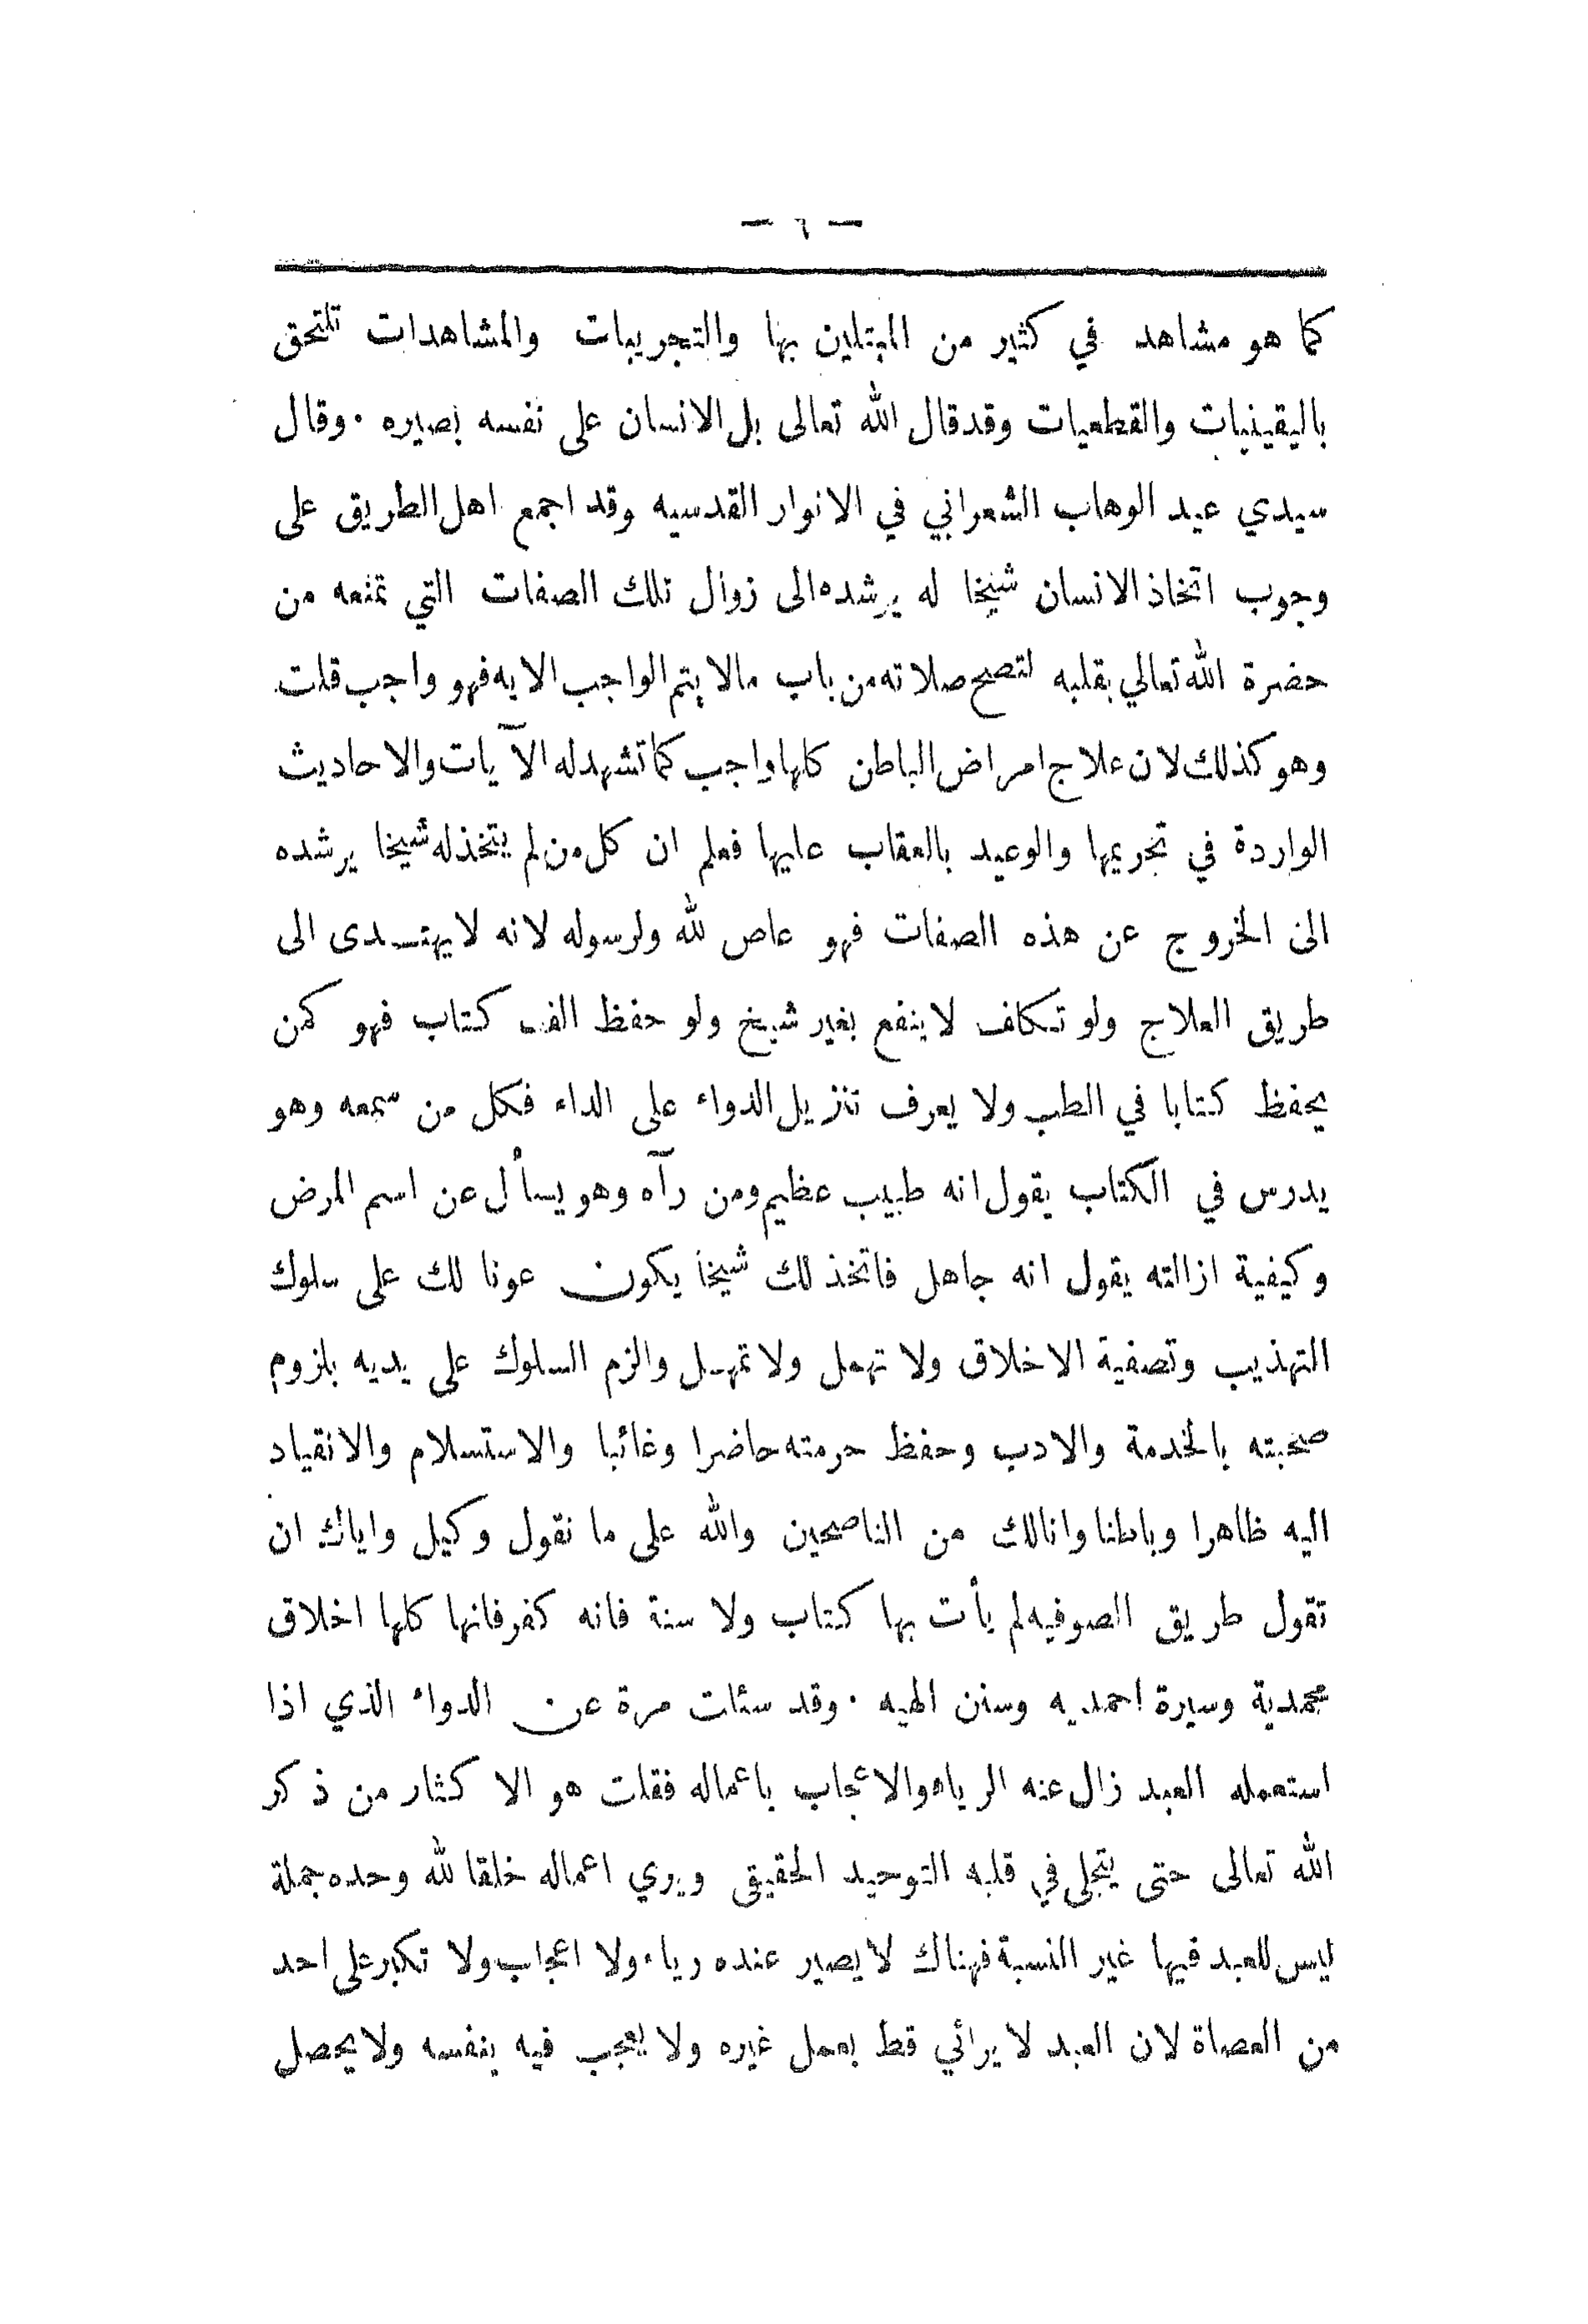 — ٦ —
كما هو مشاهد في كثير من المبتلين بها والتجريبات والمشاهدات تلتحق
باليقينيات والقطعيات وقدقال الله تعالى بل الانسان على نفسه بصيره ٠ وقال
سيدي عبد الوهاب الشعراني في الانوار القدسيه وقد اجمع اهل الطريق على
وجوب اتخاذ الانسان شيخا له يرشده الى زوال تلك الصفات التي تمنعه من
حضرة الله تعالي بقلبه لتصح صلاته من باب مالا يتم الواجب الا به فهو واجب قلت
وهو كذلك لان علاج امراض الباطن كلها واجب كما تشهد له الآيات والاحاديث
الواردة في تحريمها والوعيد بالعقاب عليها فعلم ان كل من لم يتخذ له شيخا يرشده
الى الخروج عن هذه الصفات فهو عاص لله ولرسوله لانه لا يهتدى الى
طريق العلاج ولو تكلف لا ينفع بغير شيخ ولو حفظ الف كتاب فهو كمن
يحفظ كتابا في الطب ولا يعرف تنزيل الدواء على الداء فكل من سمعه وهو
يدرس في الكتاب يقول انه طبيب عظيم ومن رآه وهو يسأل عن اسم المرض
وكيفية ازالته يقول انه جاهل فاتخذ لك شيخا يكون عونا لك على سلوك
التهذيب وتصفية الاخلاق ولا تهمل ولا تمهل والزم السلوك على يديه بلزوم
صحبته بالخدمة والادب وحفظ حرمته حاضرا وغائبا والاستسلام والانقياد
اليه ظاهرا وباطنا وانالك من الناصحين والله على ما نقول وكيل واياك ان
تقول طريق الصوفيه لم يأت بها كتاب ولا سنة فانه كفر فانها كلها اخلاق
محمدية وسيرة احمديه وسنن الهيه ٠ وقد سئلت مرة عن الدواء الذي اذا
استعمله العبد زال عنه الرياء والاعجاب باعماله فقلت هو الا كثار من ذكر
الله تعالى حتى يتجلى في قلبه التوحيد الحقيقى ويري اعماله خلقا لله وحده جملة
ليس للعبد فيها غير النسبة فهناك لا يصير عنده رياء ولا اعجاب ولا تكبر على احد
من العصاة لان العبد لا يرائي قط بعمل غيره ولا يعجب فيه بنفسه ولا يحصل